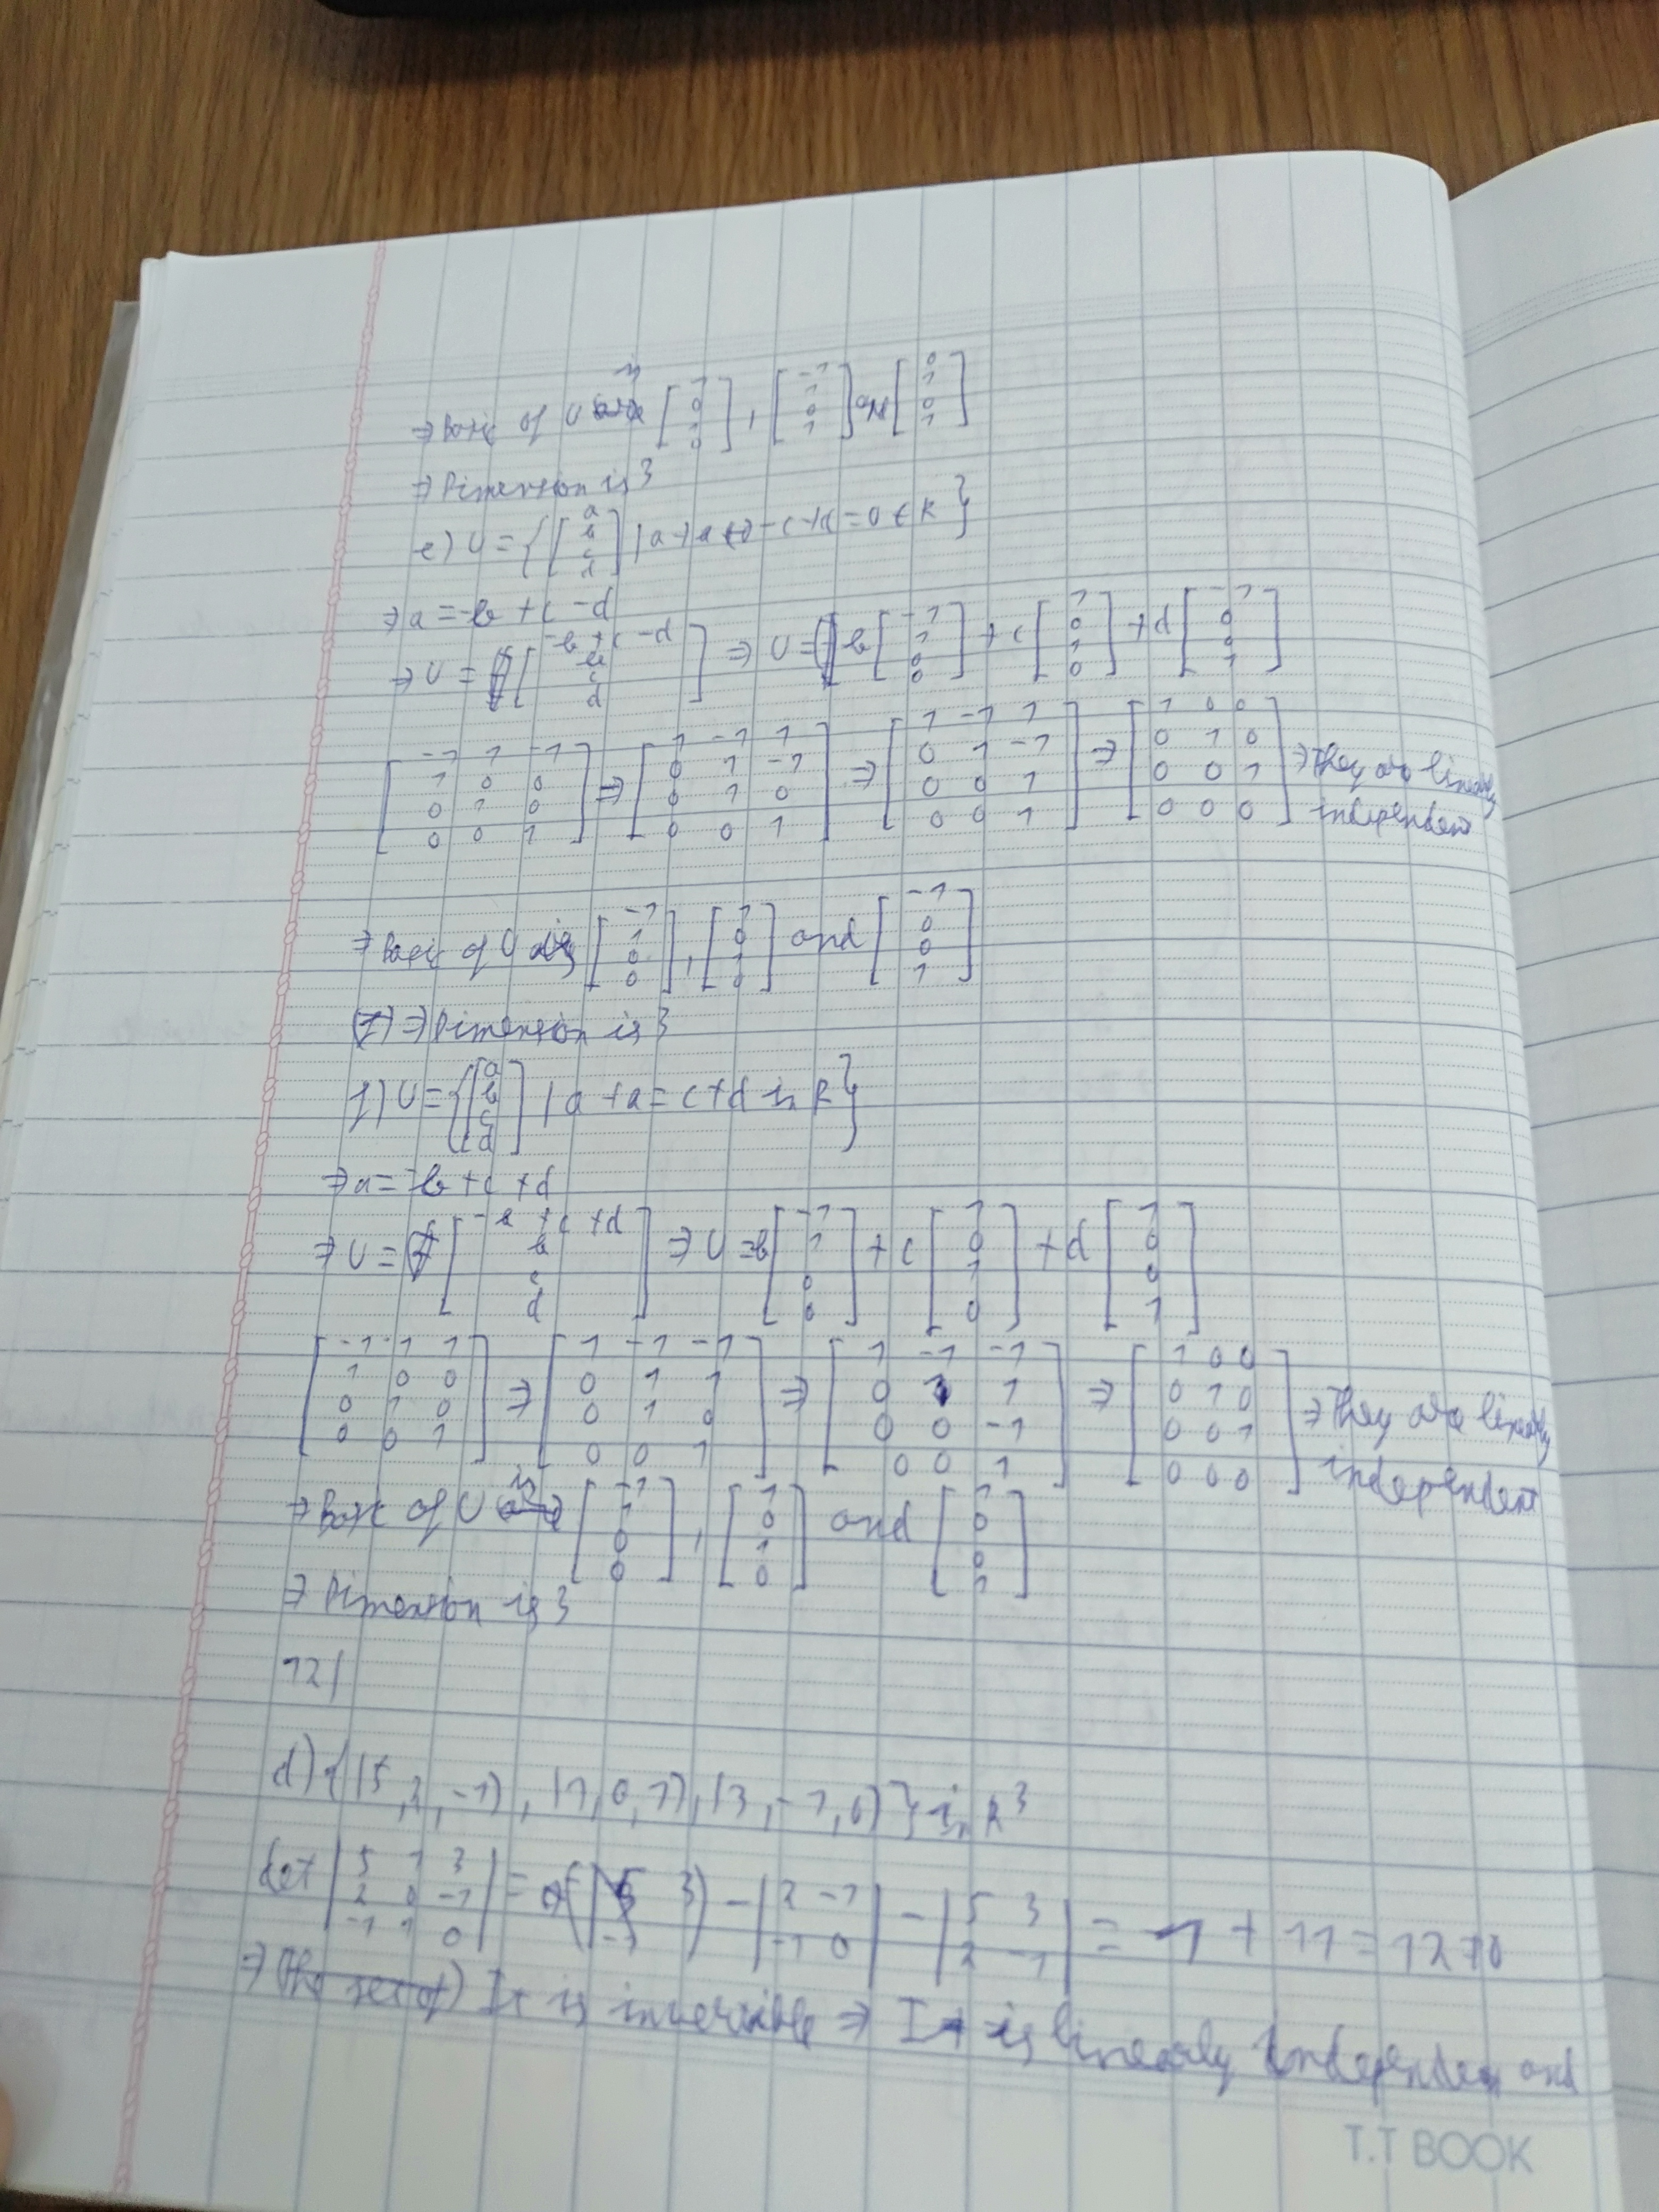 ⇒ Basis of U is [1 0 1 0], [-1 1 0 1] and [0 1 0 1]
⇒ Dimension is 3
e) U = {[a b c d] | a + b - c + d = 0 in R}
⇒ a = -b + c - d
⇒ U = [-b + c - d, b, c, d] ⇒ U = b[-1 1 0 0] + c[1 0 1 0] + d[-1 0 0 1]
[-1 1 -1; 1 0 0; 0 1 0; 0 0 1] ⇒ [1 -1 1; 0 1 -1; 0 1 0; 0 0 1] ⇒ [1 -1 1; 0 1 -1; 0 0 1; 0 0 1] ⇒ [1 0 0; 0 1 0; 0 0 1; 0 0 0] ⇒ They are linearly
independent
⇒ Basis of U is [-1 1 0 0], [1 0 1 0] and [-1 0 0 1]
⇒ Dimension is 3
f) U = {[a b c d] | a + b = c + d in R}
⇒ a = -b + c + d
⇒ U = [-b + c + d, b, c, d] ⇒ U = b[-1 1 0 0] + c[1 0 1 0] + d[1 0 0 1]
[-1 1 1; 1 0 0; 0 1 0; 0 0 1] ⇒ [1 -1 -1; 0 1 1; 0 1 0; 0 0 1] ⇒ [1 -1 -1; 0 1 1; 0 0 -1; 0 0 1] ⇒ [1 0 0; 0 1 0; 0 0 1; 0 0 0] ⇒ They are linearly
independent
⇒ Basis of U is [-1 1 0 0], [1 0 1 0] and [1 0 0 1]
⇒ Dimension is 3
12/
d) {(5, 2, -1), (1, 0, 1), (3, -1, 0)} in R³
det |5 1 3; 2 0 -1; -1 1 0| = - |2 -1; -1 0| - |5 3; 2 -1| = 1 + 11 = 12 ≠ 0
⇒ It is invertible ⇒ It is linearly independen and
T.T BOOK